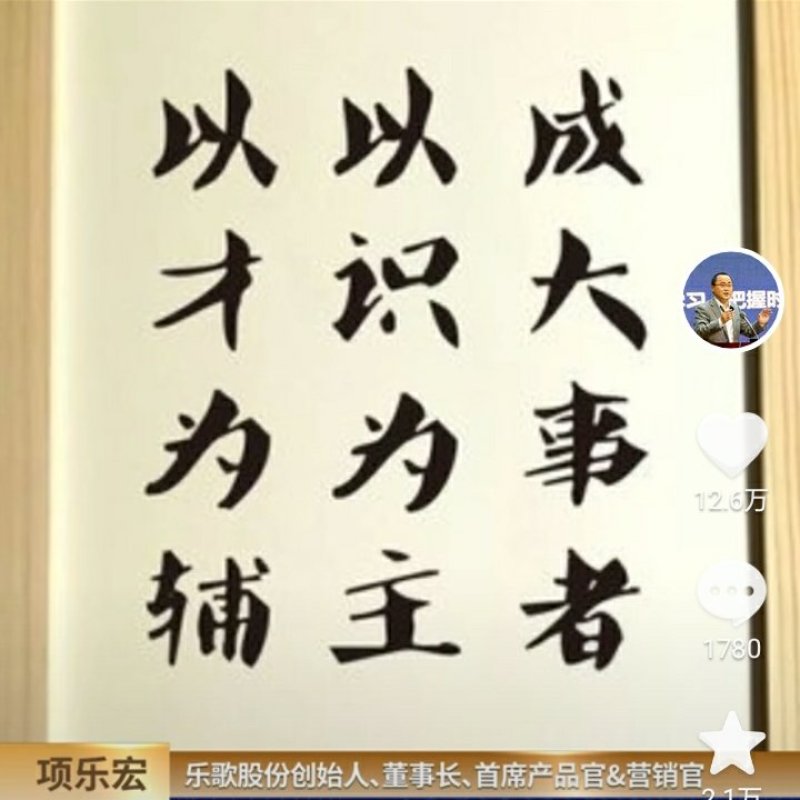 成大事者
以识为主
以才为辅
习 把握时
12.6万
1780
2.1万
项乐宏
乐歌股份创始人、董事长、首席产品官&营销官